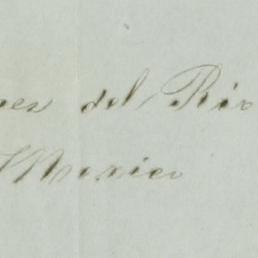 es del Rio
Mexico